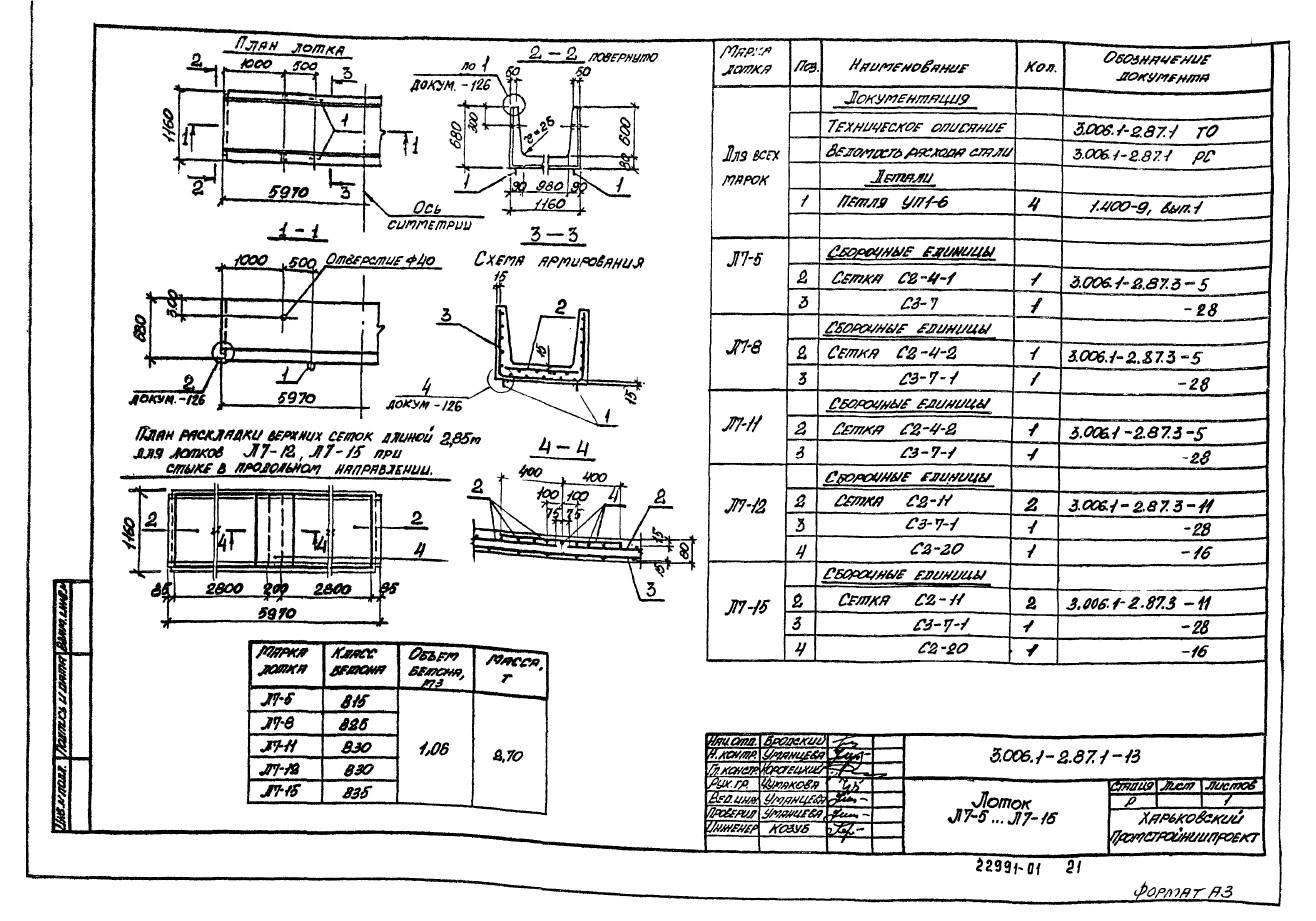 План лотка
2
1000
500
3
1160
1
1
1
2
3
5970
Ось
симметрии
2-2 повернуто
по 1
докум. -126
50
50
680
200
r=25
600
80
1
90
980
90
1
1160
1-1
1000
500
Отверстие ф40
300
680
2
докум. -126
1
5970
3-3
Схема армирования
15
3
2
15
4
докум -126
1
15
План раскладки верхних сеток длиной 2,85м
для лотков Л7-12, Л7-15 при
стыке в продольном направлении.
1160
2
4
4
2
4
85
2800
200
2800
85
5970
4-4
400
400
2
100
100
4
2
75
75
15
80
15
3
Марка лотка
Класс бетона
Объем бетона, м3
Масса, т
Л7-5
В15
1,06
2,70
Л7-8
В25
Л7-11
В30
Л7-12
В30
Л7-15
В35
Марка лотка
Поз.
Наименование
Кол.
Обозначение документа
Для всех марок
Документация
Техническое описание
3.006.1-2.87.1 ТО
Ведомость расхода стали
3.006.1-2.87.1 РС
Детали
1
Петля УП1-6
4
1.400-9, вып.1
Л7-5
Сборочные единицы
2
Сетка С2-4-1
1
3.006.1-2.87.3-5
3
С3-7
1
-28
Л7-8
Сборочные единицы
2
Сетка С2-4-2
1
3.006.1-2.87.3-5
3
С3-7-1
1
-28
Л7-11
Сборочные единицы
2
Сетка С2-4-2
1
3.006.1-2.87.3-5
3
С3-7-1
1
-28
Л7-12
Сборочные единицы
2
Сетка С2-11
2
3.006.1-2.87.3-11
3
С3-7-1
1
-28
4
С2-20
1
-16
Л7-15
Сборочные единицы
2
Сетка С2-11
2
3.006.1-2.87.3-11
3
С3-7-1
1
-28
4
С2-20
1
-16
Нач. отд. Бродский
Н. контр. Уманцева
Гл. констр.
Рук. гр. Чумакова
Вед. инж. Уманцева
Проверил Уманцева
Инженер Козуб
3.006.1-2.87.1-13
Лоток
Л7-5...Л7-15
Стадия
Лист
Листов
Р
1
Харьковский
Промстройниипроект
22991-01 21
Формат А3
Инв. № подл.
Подпись и дата
Взам. инв. №